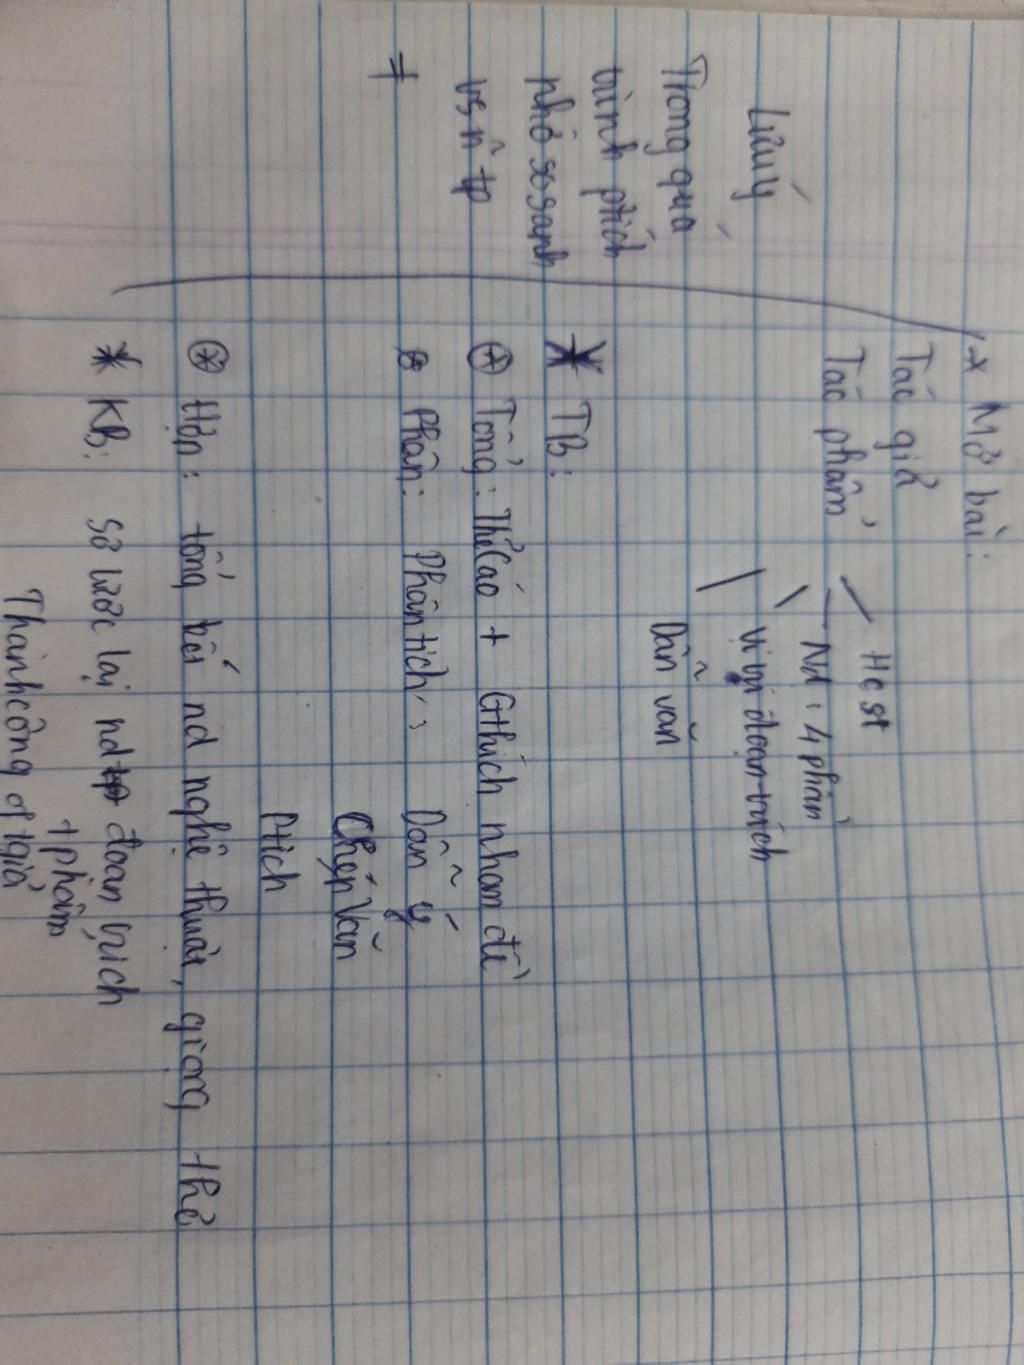 * Mở bài:
Tác giả
Tác phẩm
Hcst
Nd: 4 phần
Vị trí đoạn trích
Dẫn văn
* TB:
Tổng: Thể Cáo + Gthích nhan đề
Phân: Phân tích: Dẫn ý
Chép Văn
Ptích
Hợp: tổng kết nd nghệ thuật, giọng thơ
* KB: Sơ lược lại nd đoạn trích
+ phẩm
Thành công of tgiả
Lưu ý
Trong quá
trình ptích
nhớ so sánh
vs n~ tp
≠